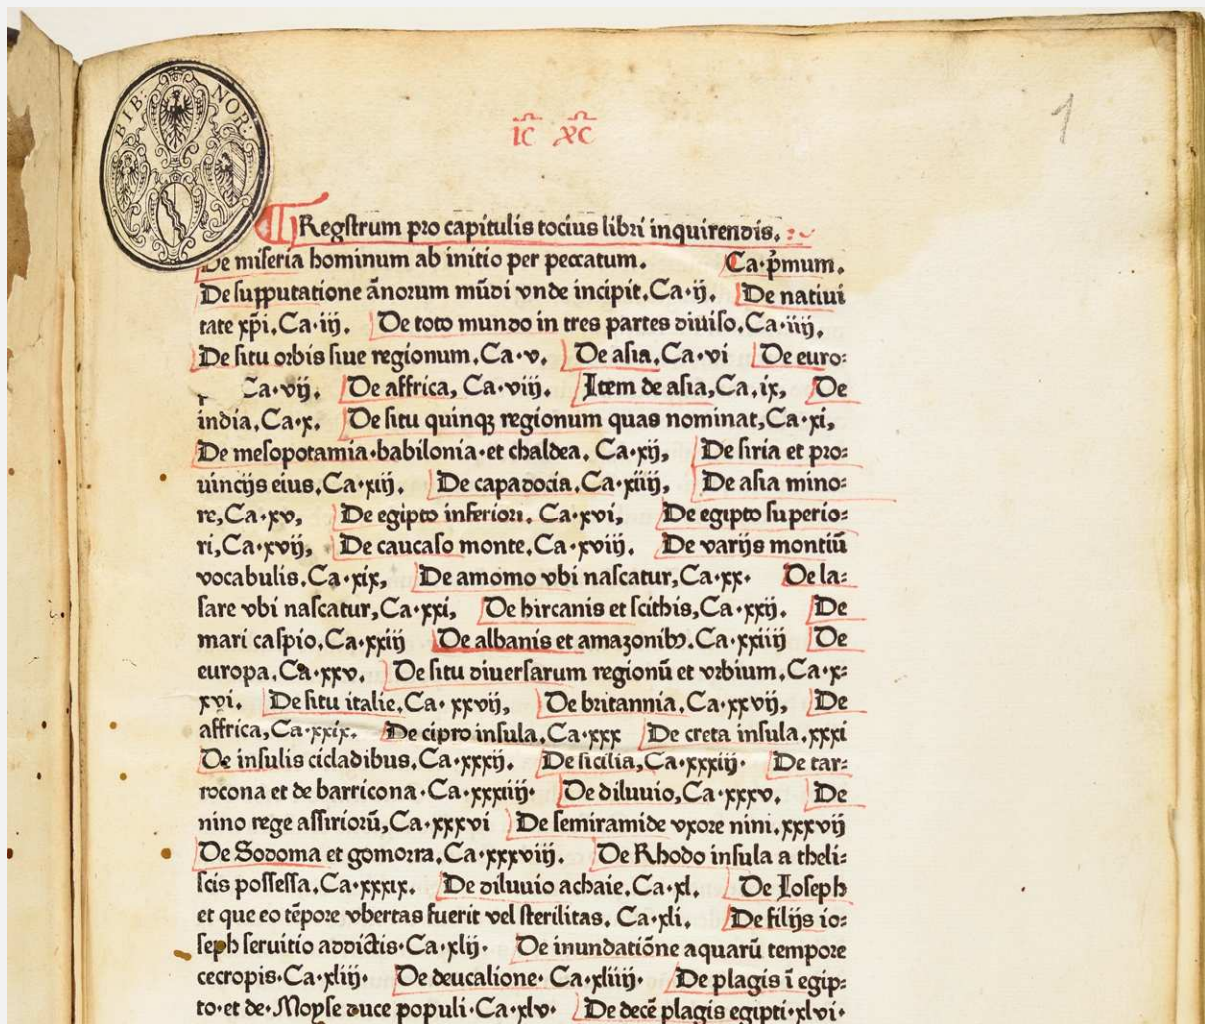 BIB: NOR:
1
ic xc
Regstrum pro capitulis tocius libri inquirendis.
De miseria hominum ab initio per peccatum. Ca·p̄mum.
De supputatione ānorum mūdi vnde incipit, Ca·ij. De natiui
tate xp̄i, Ca·iij. De toto mundo in tres partes diuiso, Ca·iiij.
De situ orbis siue regionum, Ca·v. De asia, Ca·vi De euro:
Ca·vij. De affrica, Ca·viij. Item de asia, Ca, ix, De
india, Ca·x. De situ quinqꝫ regionum quas nominat, Ca·xi,
De mesopotamia·babilonia·et chaldea, Ca·xij, De siria et pro:
uincijs eius, Ca·xiij. De capadocia, Ca·xiiij, De asia mino:
re, Ca·xv, De egipto inferiori. Ca·xvi, De egipto superio:
ri, Ca·xvij, De caucaso monte, Ca·xviij. De varijs montiū
vocabulis, Ca·xix, De amomo vbi nascatur, Ca·xx· De la:
sare vbi nascatur, Ca·xxi, De hircanis et scithis, Ca·xxij. De
mari caspio, Ca·xxiij De albanis et amazonibꝰ. Ca·xxiiij De
europa, Ca·xxv. De situ diuersarum regionū et vrbium, Ca·x:
xvi. De situ italie, Ca·xxvij, De britannia, Ca·xxvij, De
affrica, Ca·xxix. De cipro insula, Ca·xxx De creta insula, xxxi
De insulis cicladibus, Ca·xxxij. De sicilia, Ca·xxxiij· De tar:
rocona et de barricona·Ca·xxxiiij· De diluuio, Ca·xxxv. De
nino rege assiriorū, Ca·xxxvi De semiramide vxore nini, xxxvij
De Sodoma et gomorra, Ca·xxxviij. De Rhodo insula a theli:
scis possessa, Ca·xxxix. De diluuio achaie, Ca·xl. De Ioseph
et que eo tēpore vbertas fuerit vel sterilitas. Ca·xli. De filijs io:
seph seruitio addictis·Ca·xlij· De inundatiōne aquarū tempore
cecropis·Ca·xliij· De deucalione· Ca·xliiij· De plagis ī egip:
to·et de·Moyse duce populi·Ca·xlv· De decē plagis egipti·xlvi·